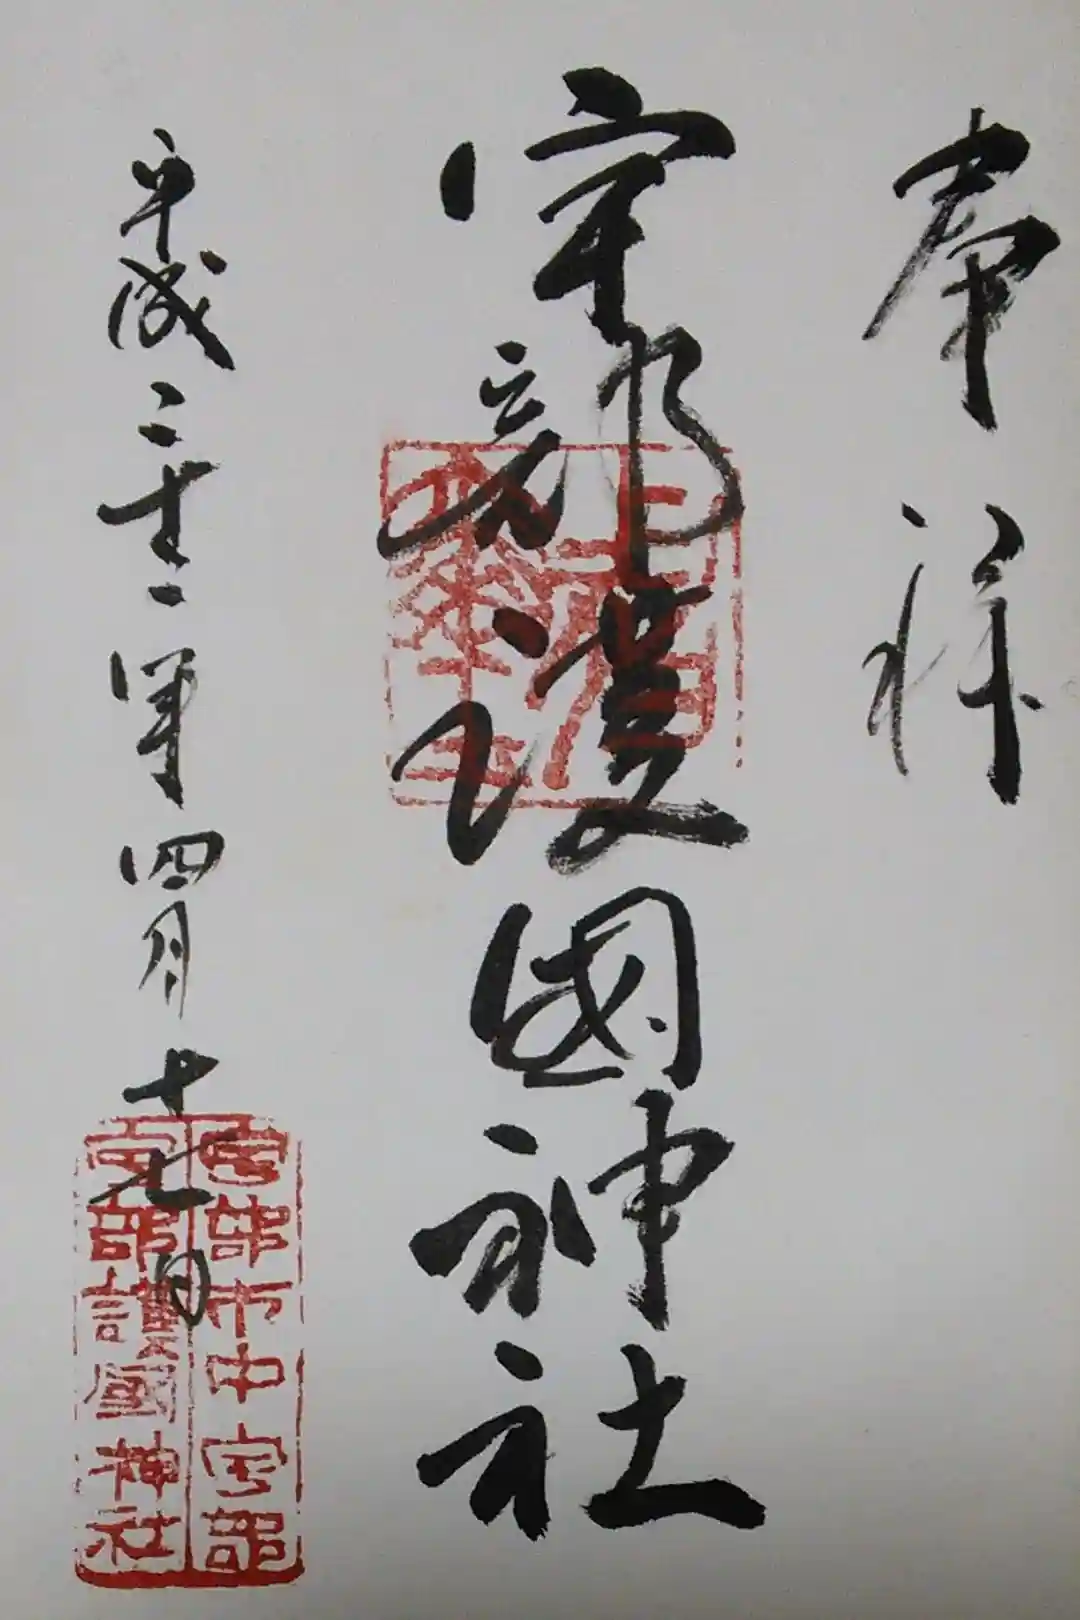 奉拝
宇部護國神社
平成二十二年四月十七日
宇部市中宇部
宇部護國神社